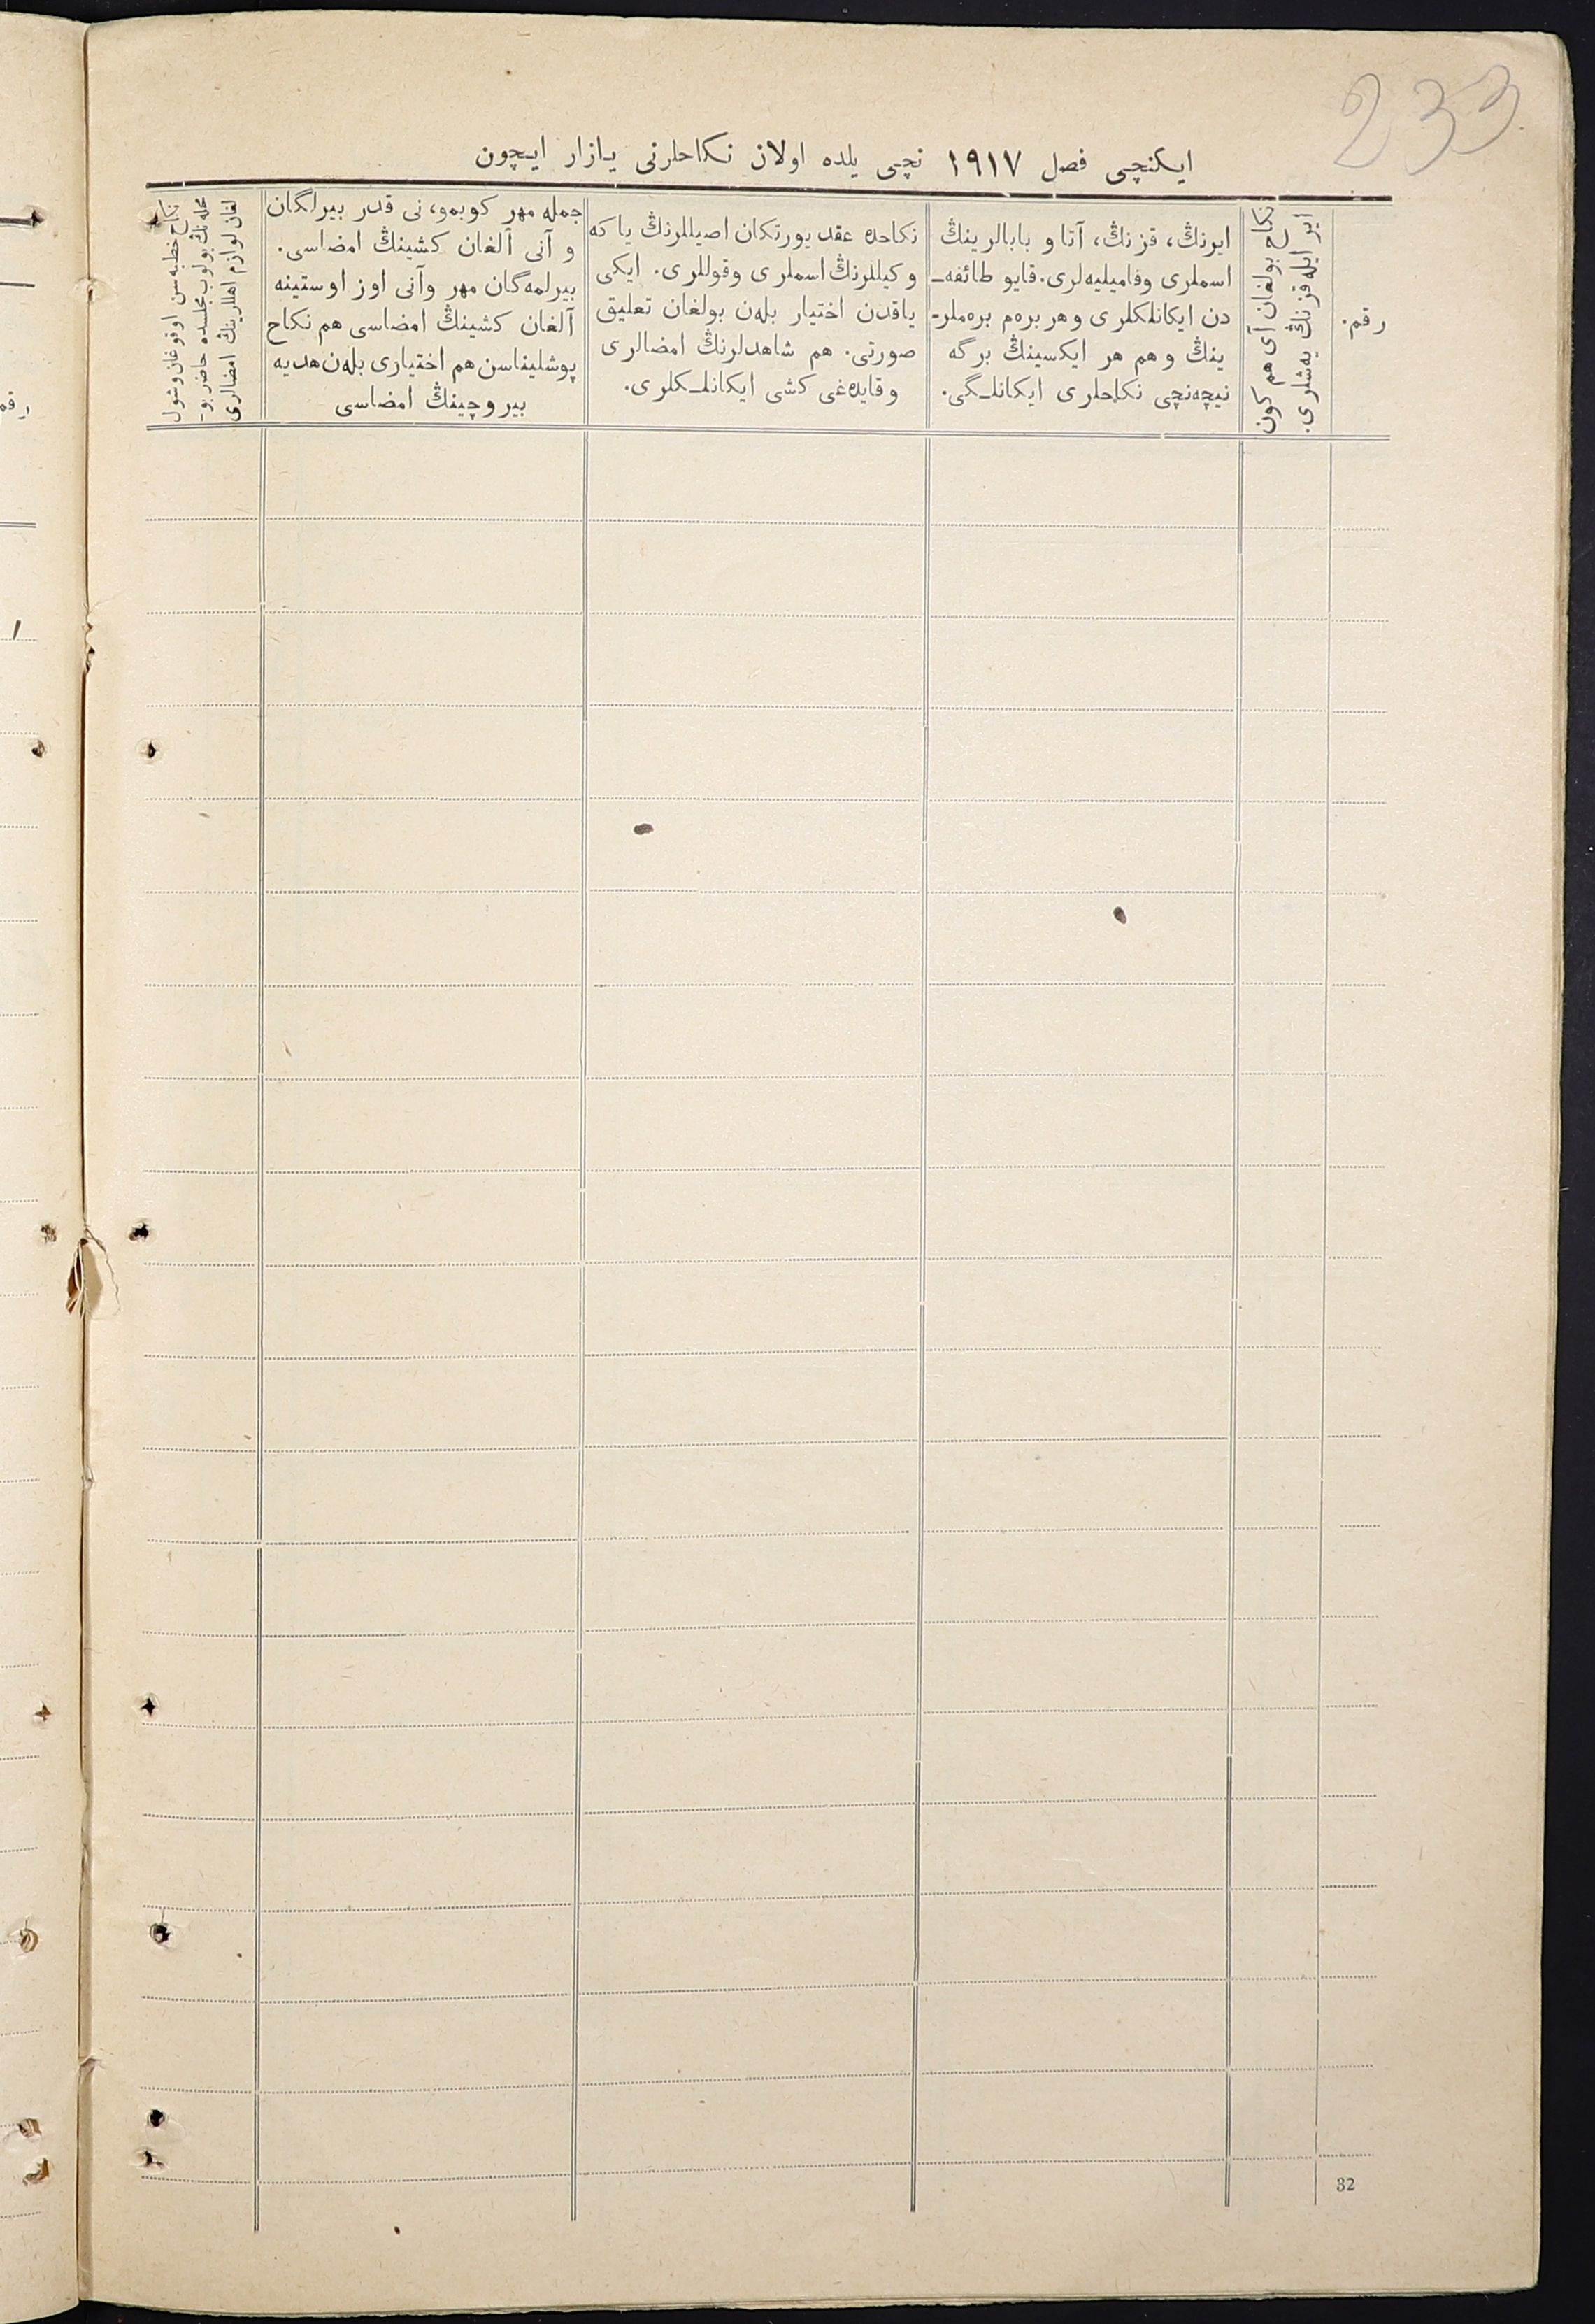 233
ایکنچی فصل ١٩١٧ نچی یلده اولان نکاحلرنی یازار ایچون
رقم.
نکاح بولغان آی هم کون
ایر ایله قزنڭ یەشلری.
ایرنڭ، قزنڭ، آتا و بابالرینڭ
اسملری وفامیلیەلری. قایو طائفه‌ـ
دن ایکانلکلری وهر برەم برەملر‌ـ
ینڭ وهم هر ایکسینڭ برگه
نیچەنچی نکاحلری ایکانلـگی.
نکاحده عقد یورتکان اصیللرنڭ یا که
وکیللرنڭ اسملری وقوللری. ایکی
یاقدن اختیار بلەن بولغان تعلیق
صورتی. هم شاهدلرنڭ امضالری
وقایدەغی کشی ایکانلـکلری.
جمله مهر کوبمو، نی قدر بیرلگان
و آنی آلغان کشینڭ امضاسی.
بیرلمەگان مهر وآنی اوز اوستینه
آلغان کشینڭ امضاسی هم نکاح
پوشلیناسن هم اختیاری بلەن هدیه
بیروچینڭ امضاسی
نکاح خطبەسن اوقوغان وشول
محلەنڭ بولوب مجلسده حاضر بو‌ـ
لغان لوازم اهللرینڭ امضالری
32
رقم